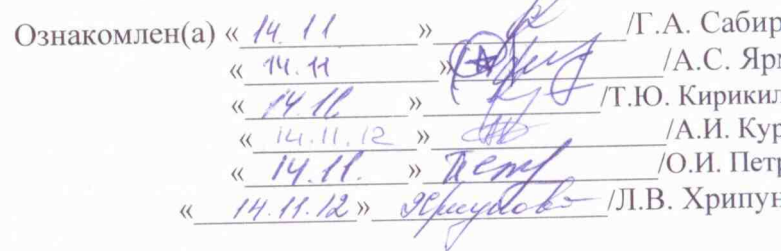 Ознакомлен(а) « 14. 11 » /Г.А. Сабир
« 14.11 » /А.С. Ярм
« 14.11. » /Т.Ю. Кирикил
« 14.11.12 » /А.И. Кур
« 14.11. » Петр /О.И. Петр
« 14.11.12 » Хрипунова /Л.В. Хрипун